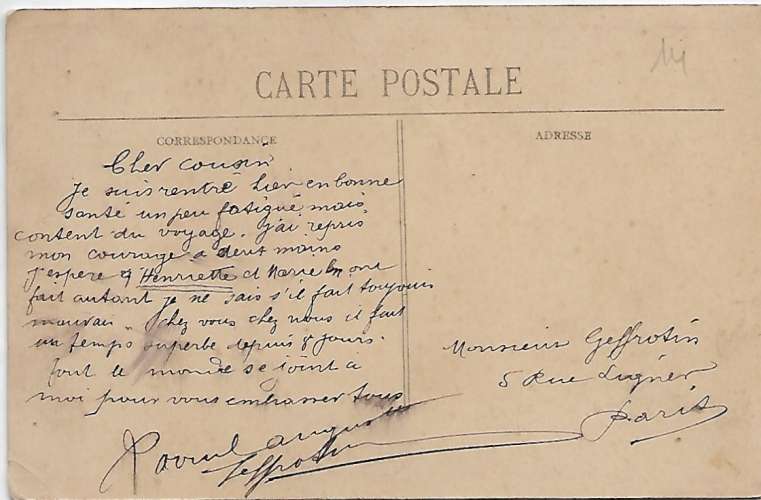 14
CARTE POSTALE
CORRESPONDANCE
Cher cousin
Je suis rentré hier en bonne
santé un peu fatigué mais
content du voyage. j'ai repris
mon courage a deux mains
j'espere q Henriette et Marie en ont
fait autant je ne sais s'il fait toujours
mauvais chez vous chez nous il fait
un temps superbe depuis 8 jours.
Tout le monde se joint à
moi pour vous embrasser tous
Raoul
Geffrotin
ADRESSE
Monsieur Geffrotin
5 Rue Lignier
Paris